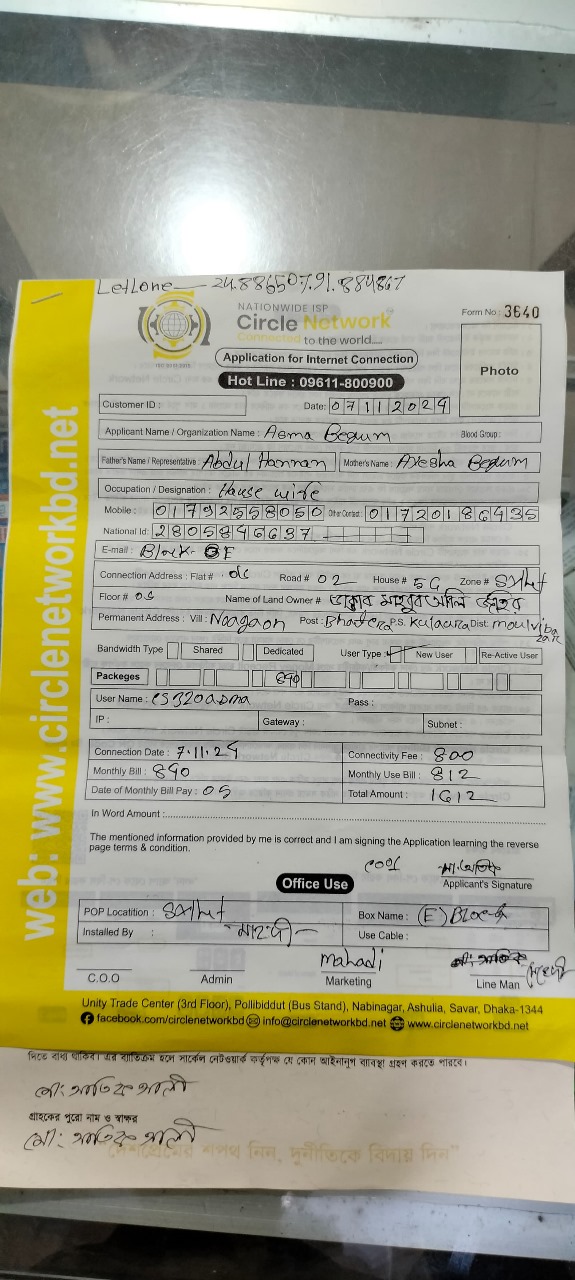 NATIONWIDE ISP
Circle Network
Connected to the world.....
Form No : 3640
Application for Internet Connection
Photo
Hot Line : 09611-800900
Customer ID :
Date: 07112024
Applicant Name / Organization Name : Asma Begum Blood Group:
Father's Name / Representative: Abdul Hannan Mother's Name: Ayesha Begum
Occupation / Designation : House wife
Mobile : 01792558050 Other Contact: 01720186435
National Id: 2805846637
E-mail : Block- E
Connection Address : Flat # Road # 02 House # 5G Zone # Sylhet
Floor # 05 Name of Land Owner #
Permanent Address : Vill : Noagaon Post : Bhatera P.S. Kulaura Dist: moulvibazar
Bandwidth Type Shared Dedicated User Type: New User Re-Active User
Packeges 890
User Name : Pass :
IP : Gateway : Subnet :
Connection Date : 7.11.24 Connectivity Fee : 800
Monthly Bill : 890 Monthly Use Bill : 812
Date of Monthly Bill Pay : 05 Total Amount : 1612
In Word Amount :
The mentioned information provided by me is correct and I am signing the Application learning the reverse
page terms & condition.
Applicant's Signature
Office Use
POP Locatition : Sylhet Box Name : (E) Block
Installed By : Use Cable :
mahadi
C.O.O Admin Marketing Line Man
Unity Trade Center (3rd Floor), Pollibiddut (Bus Stand), Nabinagar, Ashulia, Savar, Dhaka-1344
facebook.com/circlenetworkbd info@circlenetworkbd.net www.circlenetworkbd.net
web: www.circlenetworkbd.net
দিতে বাধ্য থাকিব। এর ব্যতিক্রম হলে সার্কেল নেটওয়ার্ক কর্তৃপক্ষ যে কোন আইনানুগ ব্যবস্থা গ্রহণ করতে পারবে।
মো: আতিক আলী
গ্রাহকের পুরো নাম ও স্বাক্ষর
মো: আতিক আলী
"দেশপ্রেমের শপথ নিন, দুর্নীতিকে বিদায় দিন"